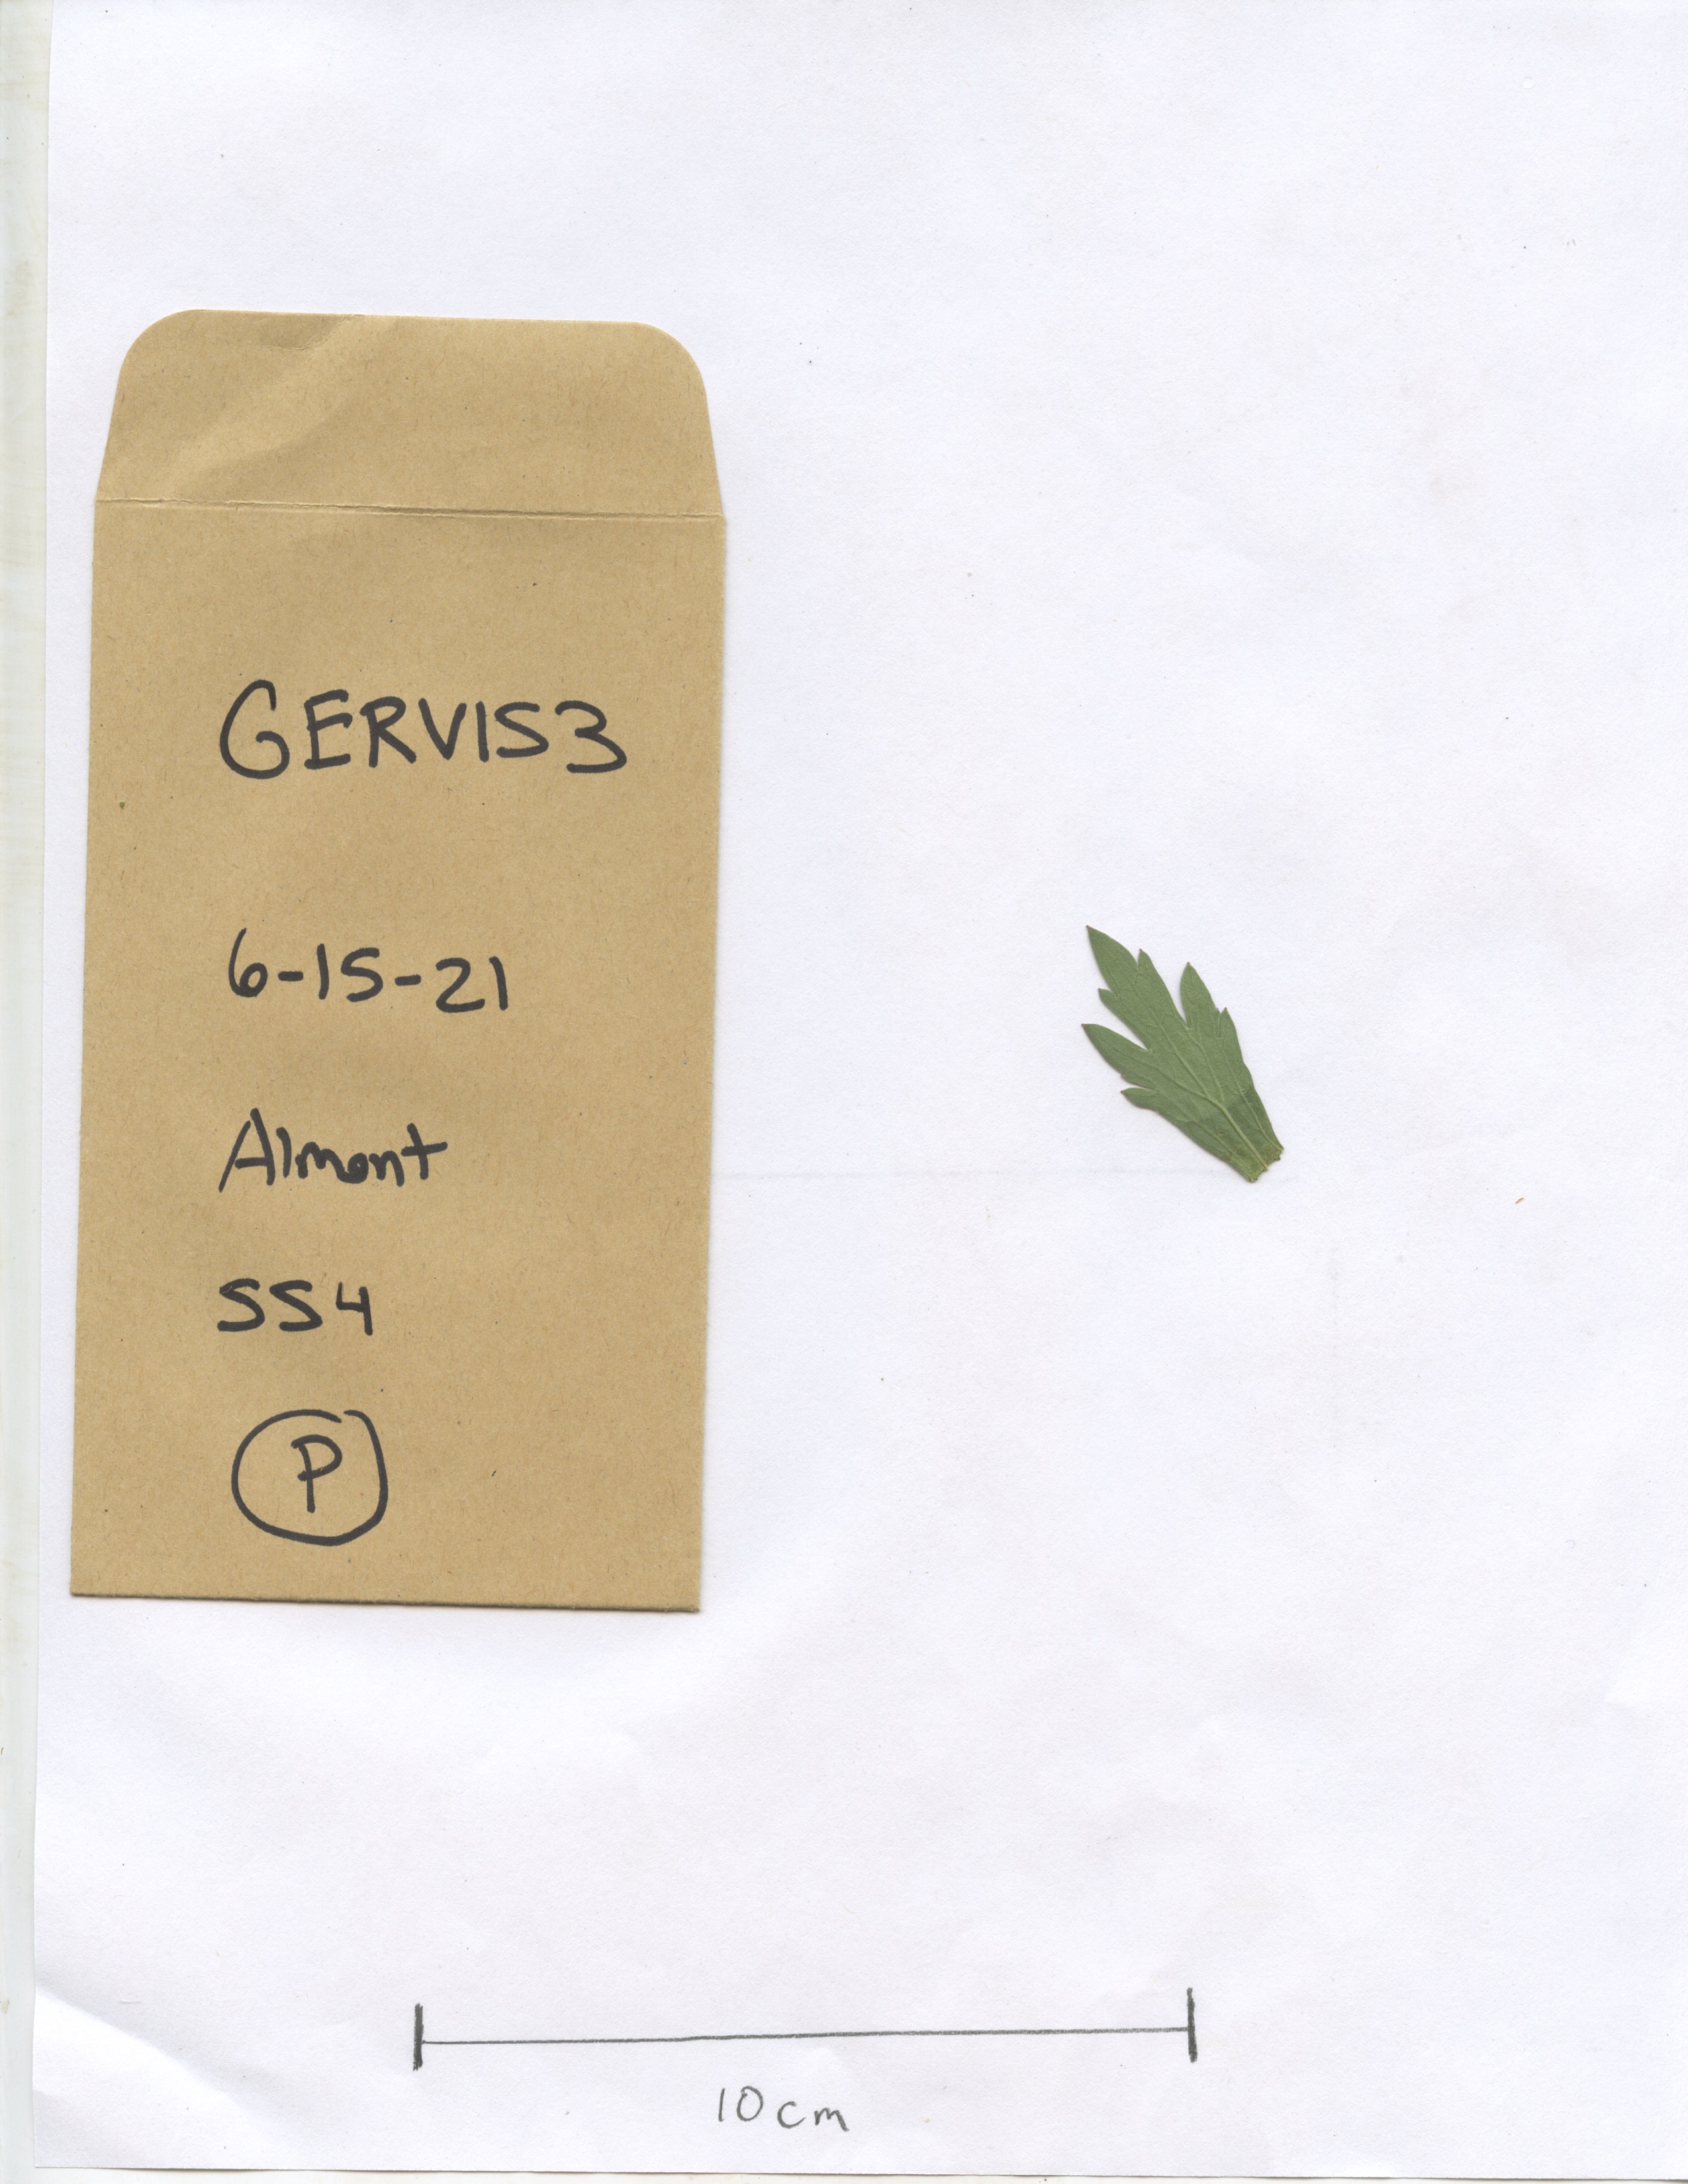 GERVIS3
6-15-21
Almont
SS4
P
10cm